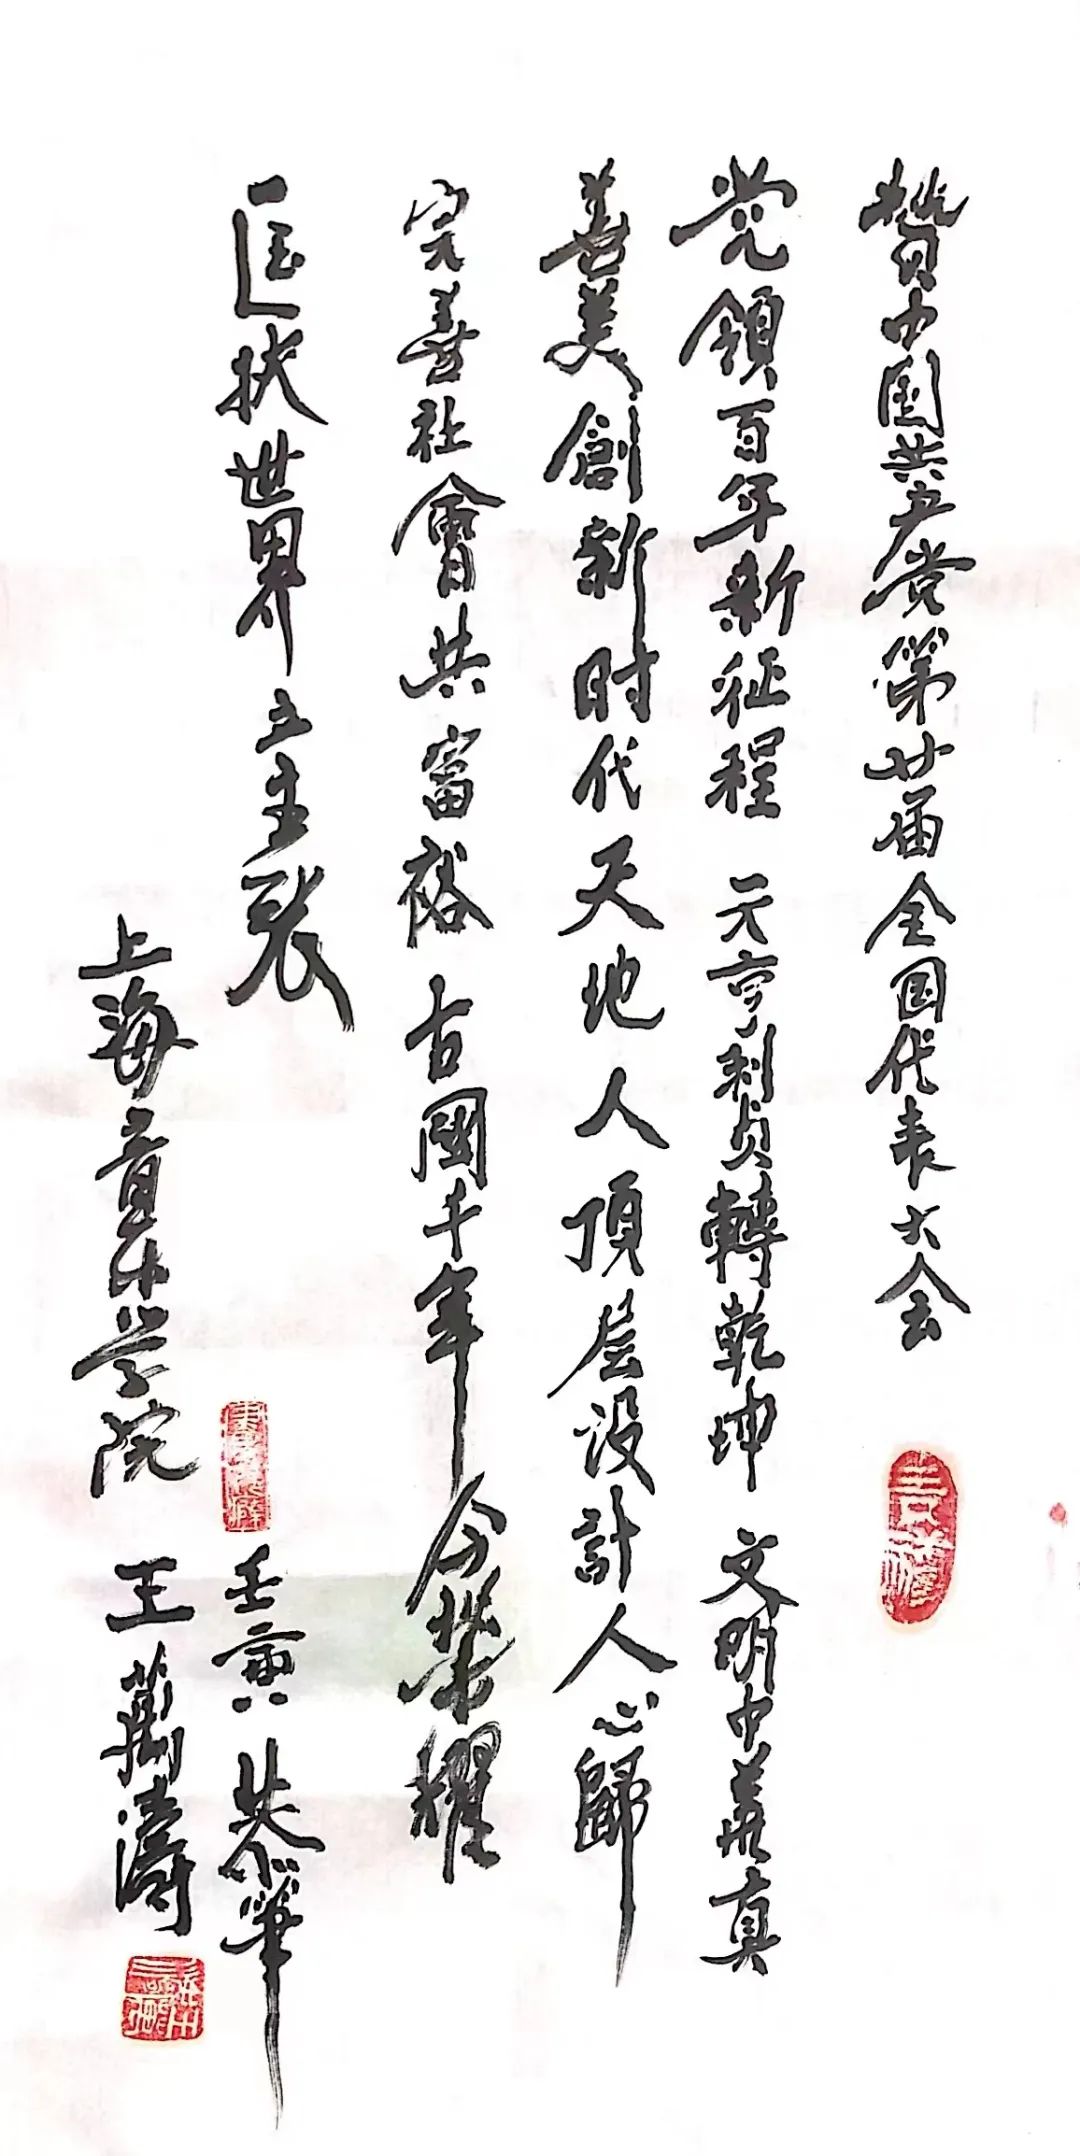 贊中国共产党第廿届全国代表大会
党領百年新征程 元亨利贞轉乾坤 文明中華真
善美創新时代天地人頂层设計人心歸
完善社會共富裕古國千年今榮耀
匡扶世界立主張
壬寅 恭筆
上海音乐学院 王萬濤